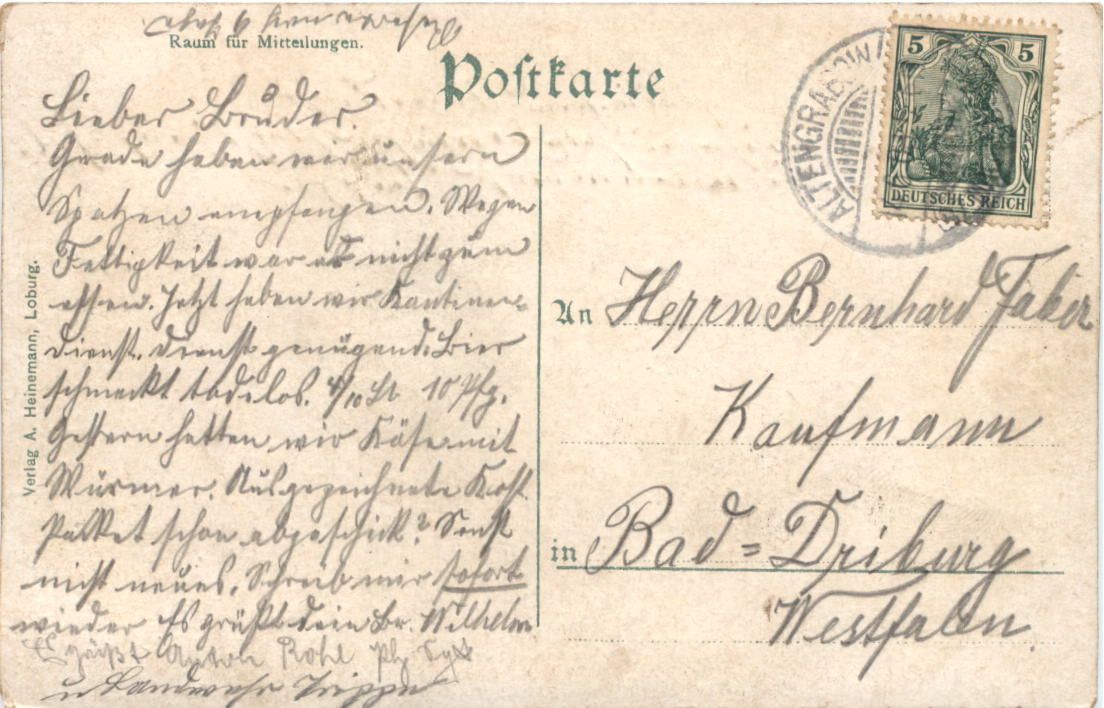 Raum für Mitteilungen.
Postkarte
Lieber Bruder.
Grade haben wir unsern
Spatzen empfangen. Wegen
Fettigkeit war es nicht zum
essen. Jetzt haben wir Kantinen-
dienst. Dienst genügend. Bier
schmeckt tadelos. 4/10 Lt 10 Pfg.
Gestern hatten wir Käse mit
Würmer. Ausgezeichnete Kost.
Packet schon abgeschick? Sonst
nicht neues. Schreib mir sofort
wieder Es grüßt dein Br. Wilhelm
Es grüßt Anton
u Landwehr
Verlag A. Heinemann, Loburg.
ALTENGRABOW
5 5
DEUTSCHES REICH
An Herrn Bernhard Faber
Kaufmann
in Bad=Driburg
Westfalen